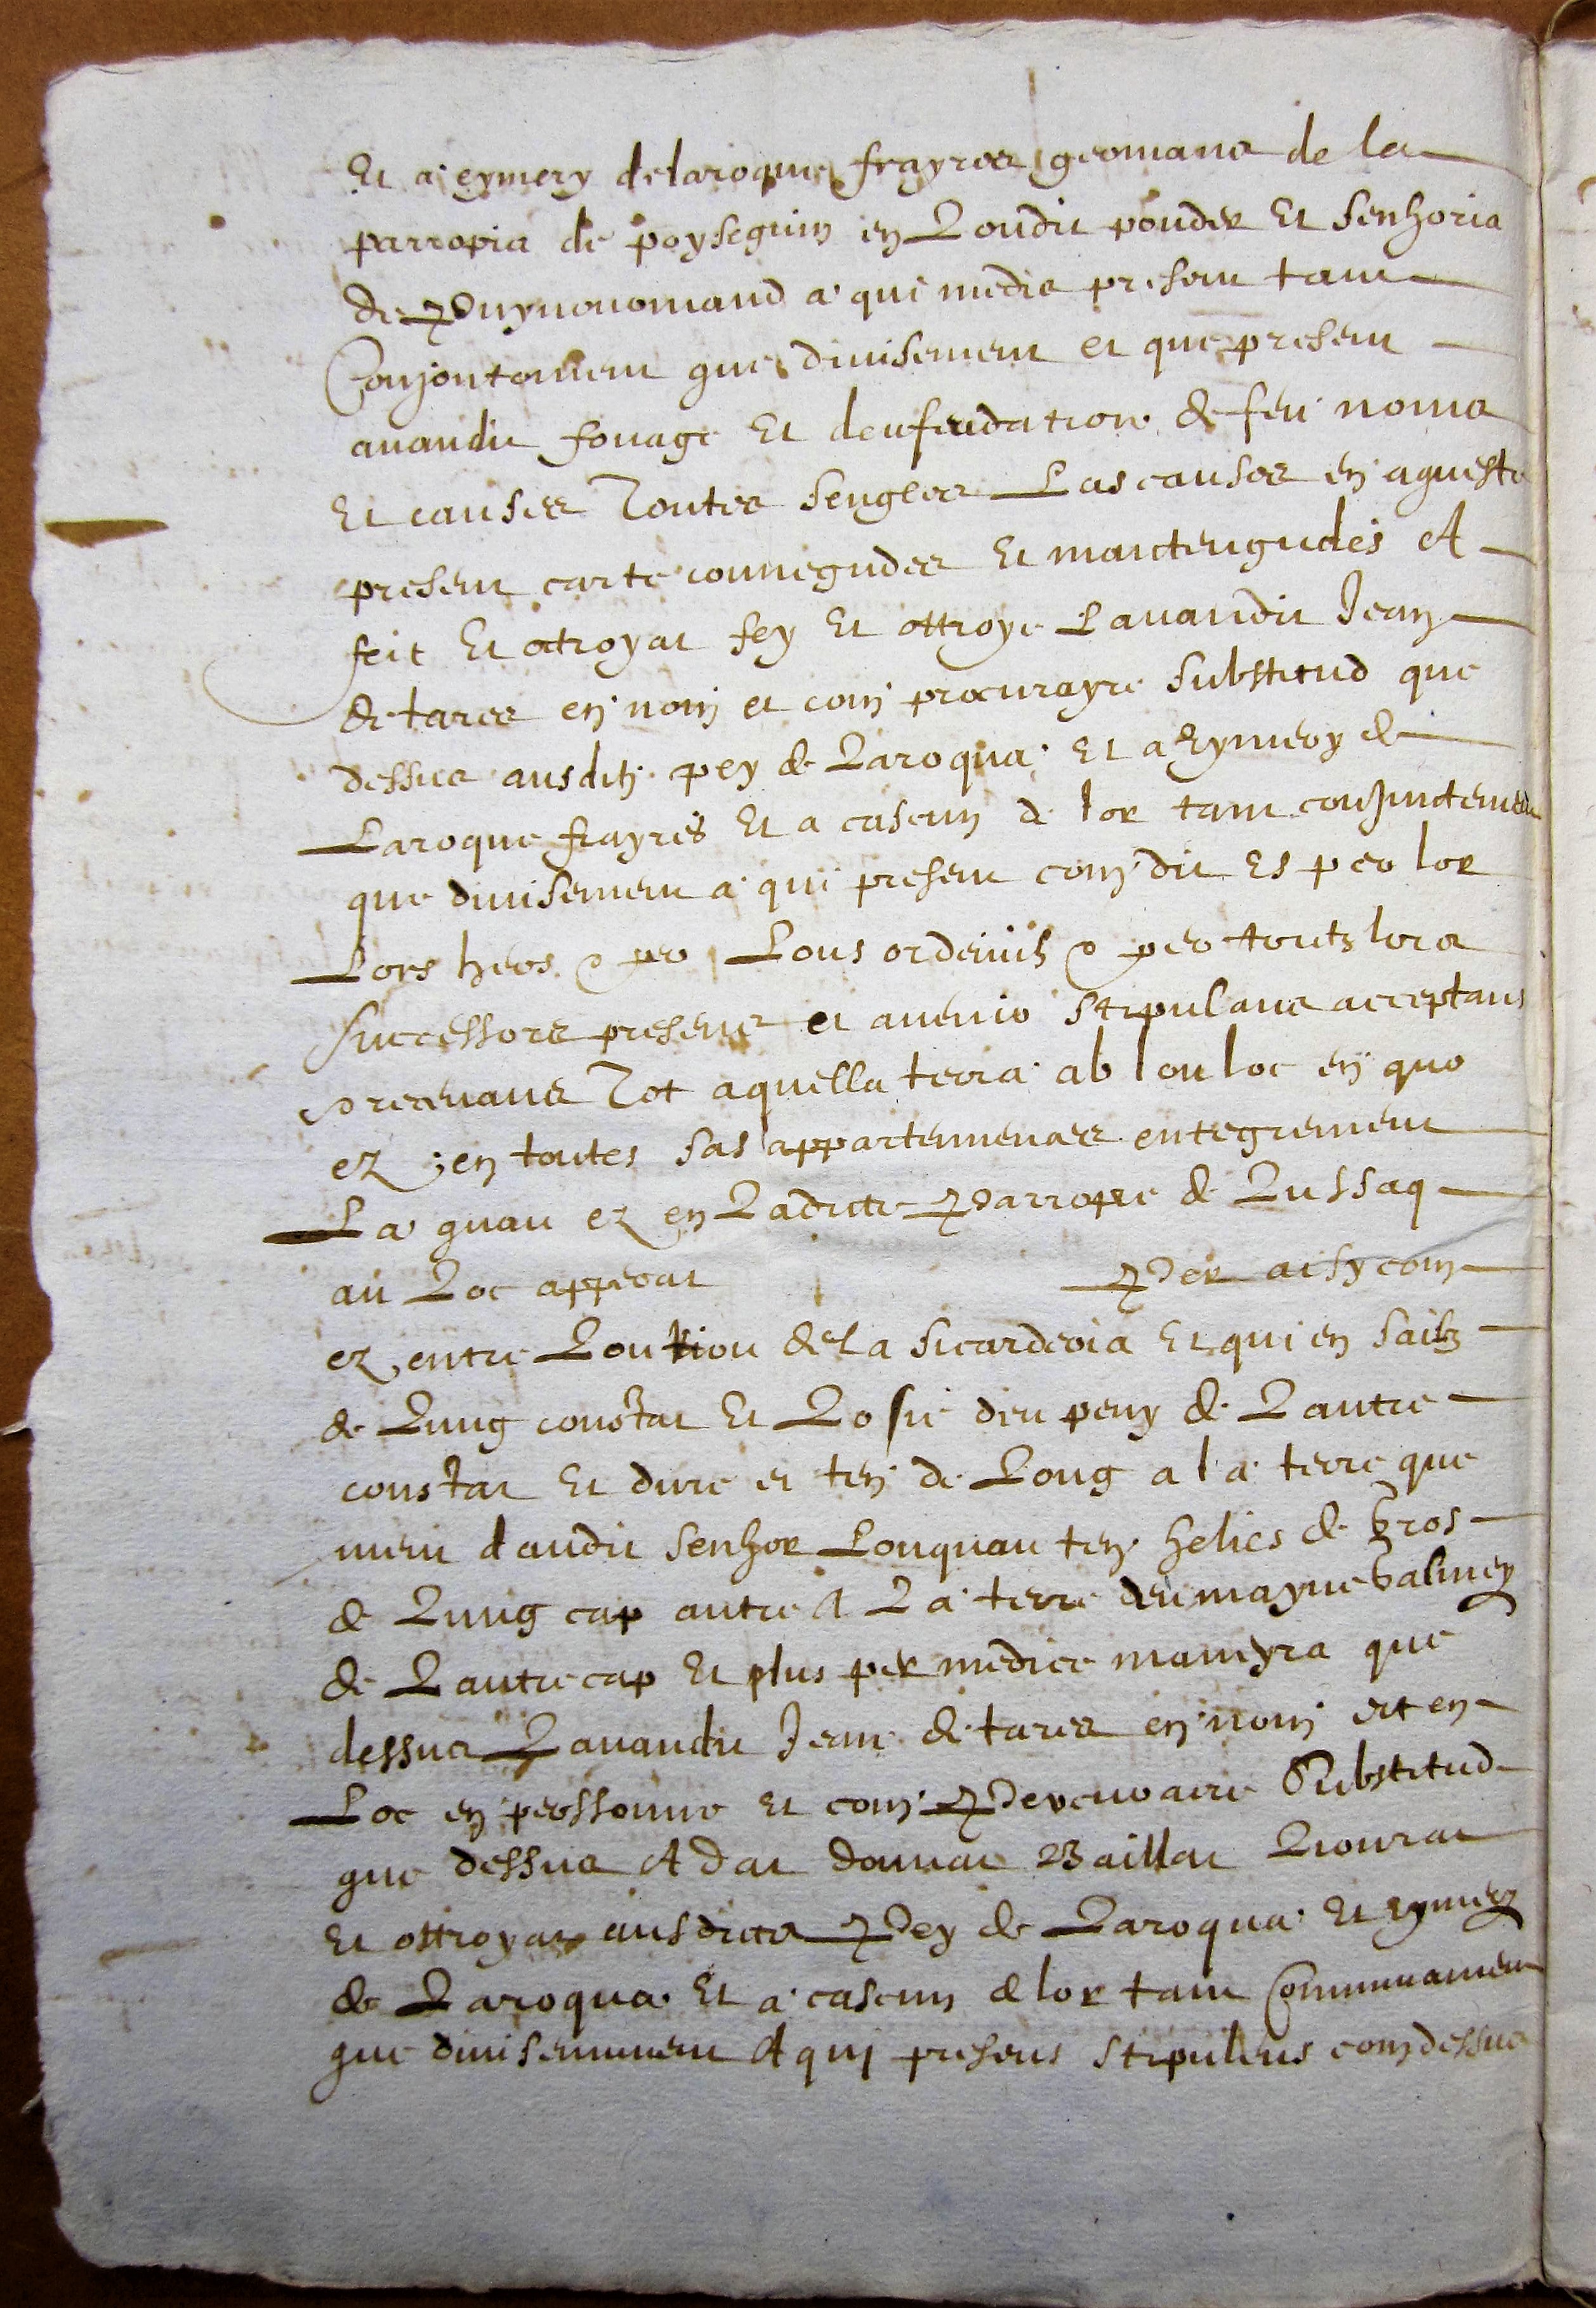 Et a eymery delaroque frayres germans de la
parropia de poyseguin en Loudit pouder Et senhoria
de Puynormand a qui medis presens tant
Conjontement que divisement et que present
avandit fouage Et deufeudation de feu noms
Et causes Toutes sengles Las causes en aqueste
present carte contengudes Et mantengudes A
feit Et otroyat fey Et ottroye Lavandit Jean
de tares en nom et com procurayre substitud que
dessus ausditz pey de Laroqua Et a Eymery de
Laroque frayres Et a cascun de lor tant conjunctement
que divisement a qui present com dit Es per lor
Lors hers & per Lous ordenis & per toutz lors
successors presens et avenir stipulans acceptans
& recevans Tot aquella terra ab lou loc en quo
ez en toutes sas appartenences entegrement
La quau ez en Ladicte Parropie de Lussaq
au Loc apperat Per aisy com
ez entre Lou riou de la sicarderia Et qui en saih
de Lung constat Et Lo sie deu peny de Lautre
constat Et dure et ten de Long a la terre que
meu daudit senhor Louquau ten helies de Gros
de Lung cap autre A La terre deu mayne Galmey
de Lautre cap Et plus per medice maneyra que
dessus Lavandit Jean de tares en nom et en
Loc en perssonne Et com Percuraire Substitud
que dessus A dat donnat Baillat Liourat
Et ottroyat ausdicts Pey de Laroqua Et Eymery
de Laroqua Et a cascun de lor tant Communament
que divisemment A qui presens stipulens com dessus